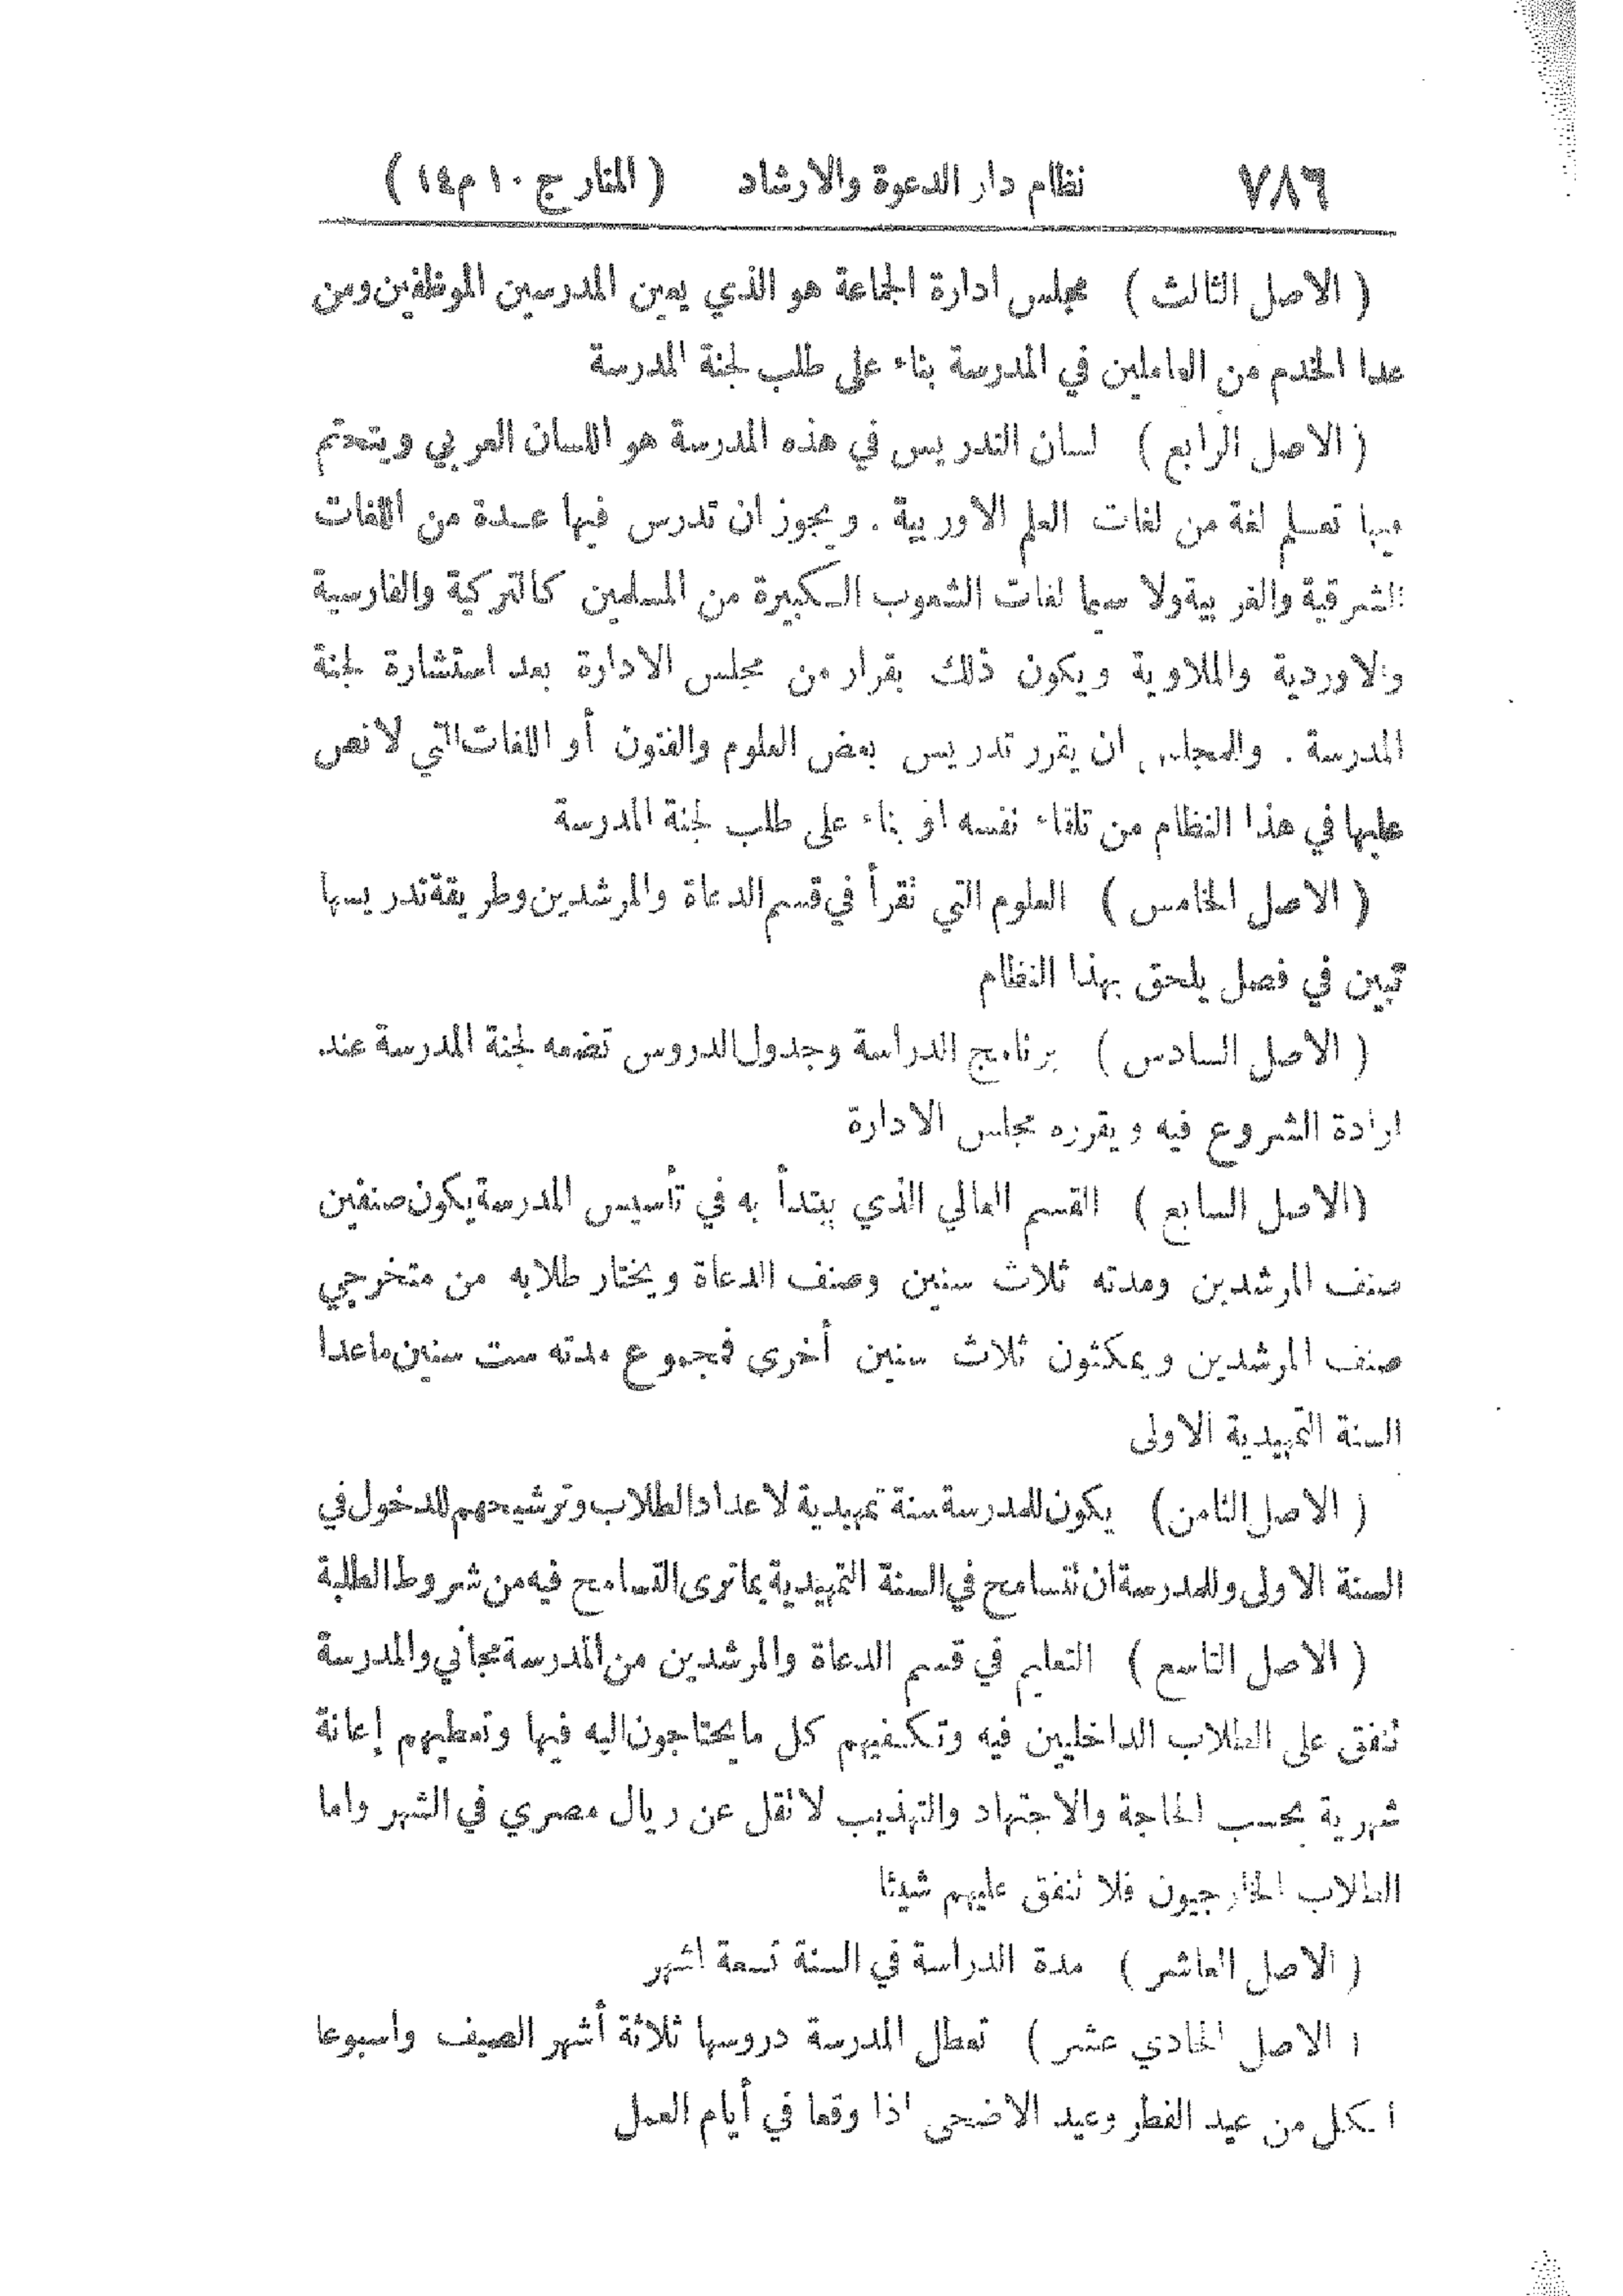 ٧٨٦ نظام دار الدعوة والارشاد ( المنار ج ١٠ م ١٤ )
( الاصل الثالث ) مجلس ادارة الجماعة هو الذي يعين المدرسين الموظفين ومن
عدا الخدم من العاملين في المدرسة بناء على طلب لجنة المدرسة
( الاصل الرابع ) لسان التدريس في هذه المدرسة هو اللسان العربي ويتحتم
فيها تعلم لغة من لغات العلم الاوربية . ويجوز ان تدرس فيها عدة من اللغات
الشرقية والغربية ولا سيما لغات الشعوب الكبيرة من المسلمين كالتركية والفارسية
والاوردية والملاوية ويكون ذلك بقرار من مجلس الادارة بعد استشارة لجنة
المدرسة . وللمجلس ان يقرر تدريس بعض العلوم والفنون أو اللغات التي لا نص
عليها في هذا النظام من تلقاء نفسه او بناء على طلب لجنة المدرسة
( الاصل الخامس ) العلوم التي تقرأ في قسم الدعاة والمرشدين وطريقة تدريسها
تبين في فصل يلحق بهذا النظام
( الاصل السادس ) برنامج الدراسة وجدول الدروس تضعه لجنة المدرسة عند
ارادة الشروع فيه ويقرره مجلس الادارة
(الاصل السابع ) القسم العالي الذي يبتدأ به في تأسيس المدرسة يكون صنفين
صنف المرشدين ومدته ثلاث سنين وصنف الدعاة ويختار طلابه من متخرجي
صنف المرشدين ويمكثون ثلاث سنين أخرى فمجموع مدته ست سنين ماعدا
السنة التمهيدية الاولى
( الاصل الثامن) يكون للمدرسة سنة تمهيدية لاعداد الطلاب وترشيحهم للدخول في
السنة الاولى وللمدرسة ان تتسامح في السنة التمهيدية بما ترى التسامح فيه من شروط الطلبة
( الاصل التاسع ) التعليم في قسم الدعاة والمرشدين من المدرسة مجاني والمدرسة
تنفق على الطلاب الداخليين فيه وتكفيهم كل ما يحتاجون اليه فيها وتعطيهم إعانة
شهرية بحسب الحاجة والاجتهاد والتهذيب لا تقل عن ريال مصري في الشهر واما
الطلاب الخارجيون فلا تنفق عليهم شيئا
( الاصل العاشر ) مدة الدراسة في السنة تسعة اشهر
( الاصل الحادي عشر ) تعطل المدرسة دروسها ثلاثة أشهر الصيف واسبوعا
لكل من عيد الفطر وعيد الاضحى اذا وقعا في أيام العمل